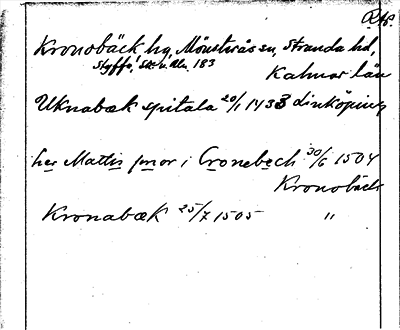 RAp.
Kronobäck hg, Mönsterås sn, Stranda hd,
Styffe, Sk. u. Un. 183
Kalmar län
Uknabæk spitala 20/1 1433 Linköping
her Mattis prior i Cronebech 30/6 1504
Kronobäck
Kronabæk 25/7 1505 "